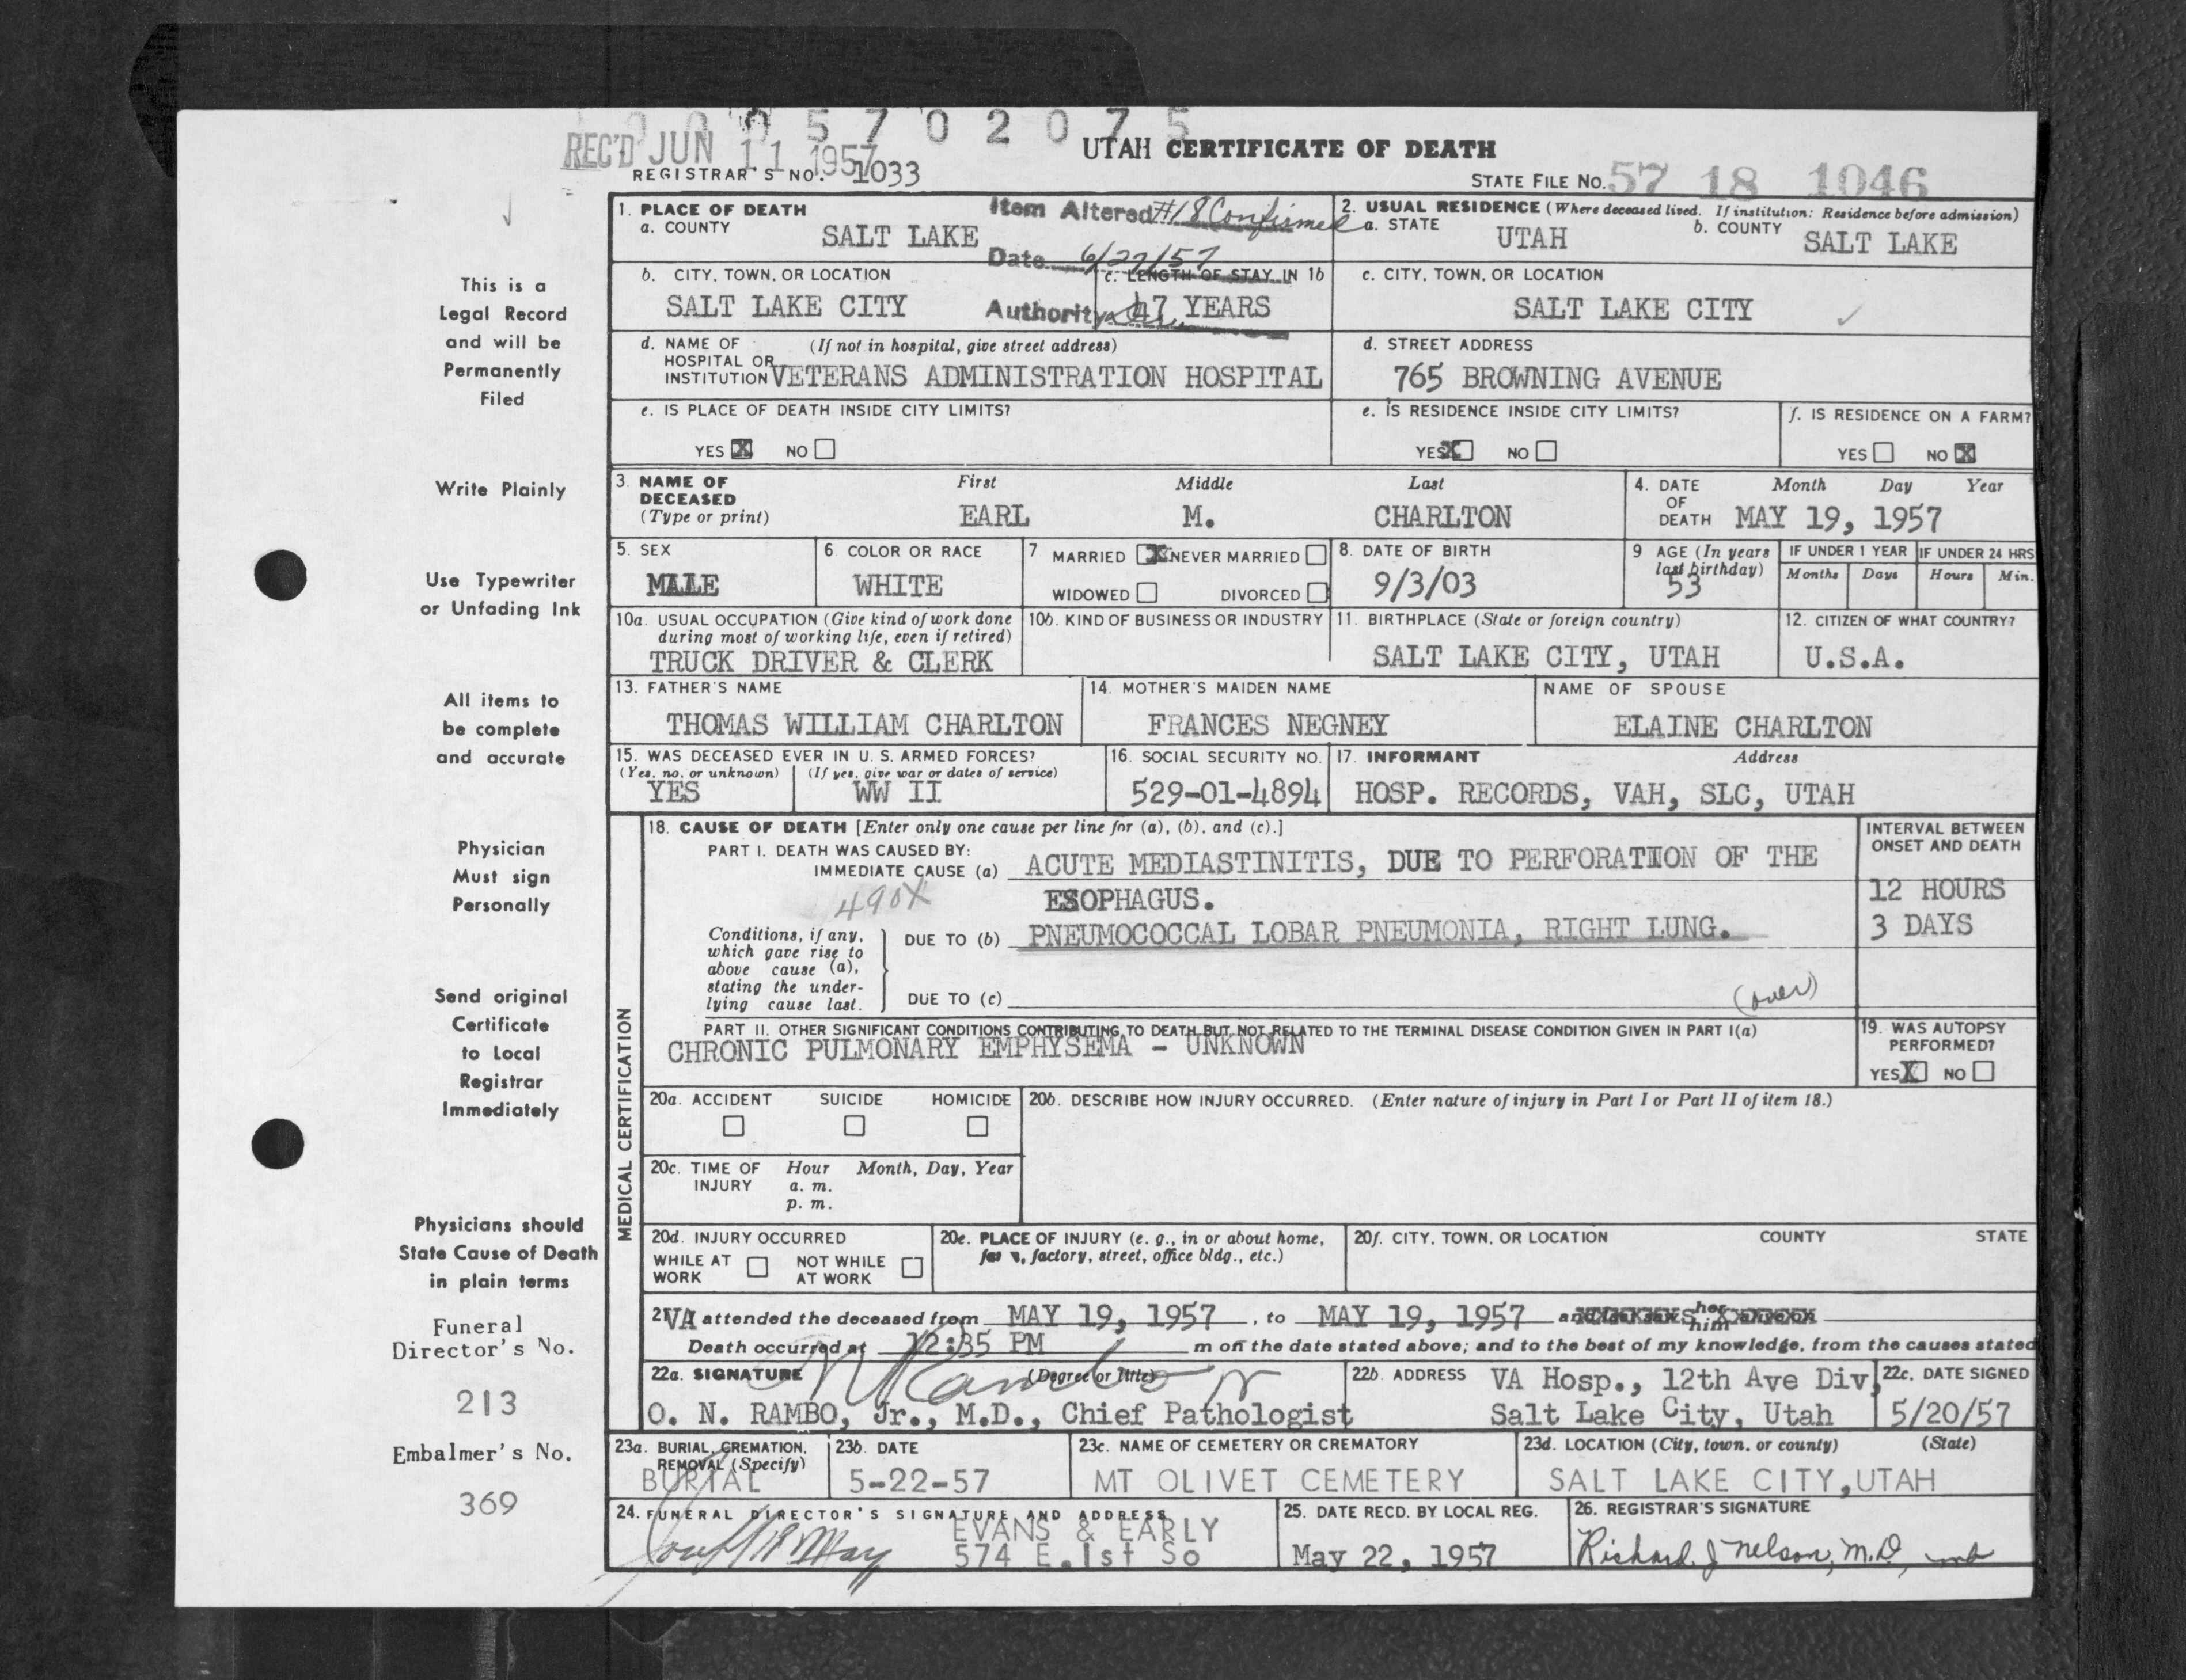 0 0 0 5 7 0 2 0 7 5
REC'D JUN 11 1957
UTAH CERTIFICATE OF DEATH
REGISTRAR'S NO. 1033
STATE FILE NO. 57 18 1046
This is a
Legal Record
and will be
Permanently
Filed
Write Plainly
Use Typewriter
or Unfading Ink
All items to
be complete
and accurate
Physician
Must sign
Personally
Send original
Certificate
to Local
Registrar
Immediately
Physicians should
State Cause of Death
in plain terms
Funeral
Director's No.
213
Embalmer's No.
369
1. PLACE OF DEATH
a. COUNTY
SALT LAKE
Item Altered #18 Confirmed
Date 6/27/57
Authority
2. USUAL RESIDENCE (Where deceased lived. If institution: Residence before admission)
a. STATE UTAH b. COUNTY SALT LAKE
b. CITY, TOWN, OR LOCATION
SALT LAKE CITY
c. LENGTH OF STAY IN 1b
47 YEARS
c. CITY, TOWN, OR LOCATION
SALT LAKE CITY
d. NAME OF (If not in hospital, give street address)
HOSPITAL OR
INSTITUTION VETERANS ADMINISTRATION HOSPITAL
d. STREET ADDRESS
765 BROWNING AVENUE
e. IS PLACE OF DEATH INSIDE CITY LIMITS?
YES X NO
e. IS RESIDENCE INSIDE CITY LIMITS?
YES X NO
f. IS RESIDENCE ON A FARM?
YES NO X
3. NAME OF DECEASED First Middle Last
(Type or print)
EARL M. CHARLTON
4. DATE OF DEATH Month Day Year
MAY 19, 1957
5. SEX
MALE
6. COLOR OR RACE
WHITE
7 MARRIED X NEVER MARRIED
WIDOWED DIVORCED
8. DATE OF BIRTH
9/3/03
9 AGE (In years
last birthday)
53
IF UNDER 1 YEAR IF UNDER 24 HRS
Months Days Hours Min.
10a. USUAL OCCUPATION (Give kind of work done
during most of working life, even if retired)
TRUCK DRIVER & CLERK
10b. KIND OF BUSINESS OR INDUSTRY
11. BIRTHPLACE (State or foreign country)
SALT LAKE CITY, UTAH
12. CITIZEN OF WHAT COUNTRY?
U.S.A.
13. FATHER'S NAME
THOMAS WILLIAM CHARLTON
14. MOTHER'S MAIDEN NAME
FRANCES NEGNEY
NAME OF SPOUSE
ELAINE CHARLTON
15. WAS DECEASED EVER IN U. S. ARMED FORCES?
(Yes, no, or unknown) (If yes, give war or dates of service)
YES WW II
16. SOCIAL SECURITY NO.
529-01-4894
17. INFORMANT Address
HOSP. RECORDS, VAH, SLC, UTAH
MEDICAL CERTIFICATION
18. CAUSE OF DEATH [Enter only one cause per line for (a), (b), and (c).]
PART I. DEATH WAS CAUSED BY:
IMMEDIATE CAUSE (a) ACUTE MEDIASTINITIS, DUE TO PERFORATION OF THE
ESOPHAGUS.
490X
Conditions, if any,
which gave rise to
above cause (a),
stating the under-
lying cause last.
DUE TO (b) PNEUMOCOCCAL LOBAR PNEUMONIA, RIGHT LUNG.
DUE TO (c)
(over)
INTERVAL BETWEEN
ONSET AND DEATH
12 HOURS
3 DAYS
PART II. OTHER SIGNIFICANT CONDITIONS CONTRIBUTING TO DEATH BUT NOT RELATED TO THE TERMINAL DISEASE CONDITION GIVEN IN PART I(a)
CHRONIC PULMONARY EMPHYSEMA - UNKNOWN
19. WAS AUTOPSY
PERFORMED?
YES X NO
20a. ACCIDENT SUICIDE HOMICIDE
20b. DESCRIBE HOW INJURY OCCURRED. (Enter nature of injury in Part I or Part II of item 18.)
20c. TIME OF INJURY Hour Month, Day, Year
a. m.
p. m.
20d. INJURY OCCURRED
WHILE AT WORK NOT WHILE AT WORK
20e. PLACE OF INJURY (e. g., in or about home,
farm, factory, street, office bldg., etc.)
20f. CITY, TOWN, OR LOCATION COUNTY STATE
2 VA attended the deceased from MAY 19, 1957, to MAY 19, 1957 and her him
Death occurred at 12:35 PM m on the date stated above; and to the best of my knowledge, from the causes stated
22a. SIGNATURE (Degree or title)
O N Rambo Jr
O. N. RAMBO, Jr., M.D., Chief Pathologist
22b. ADDRESS VA Hosp., 12th Ave Div,
Salt Lake City, Utah
22c. DATE SIGNED
5/20/57
23a. BURIAL, CREMATION,
REMOVAL (Specify)
BURIAL
23b. DATE
5-22-57
23c. NAME OF CEMETERY OR CREMATORY
MT OLIVET CEMETERY
23d. LOCATION (City, town, or county) (State)
SALT LAKE CITY, UTAH
24. FUNERAL DIRECTOR'S SIGNATURE AND ADDRESS
EVANS & EARLY
574 E. 1st So
25. DATE RECD. BY LOCAL REG.
May 22, 1957
26. REGISTRAR'S SIGNATURE
Richard J Nelson, M.D. mb